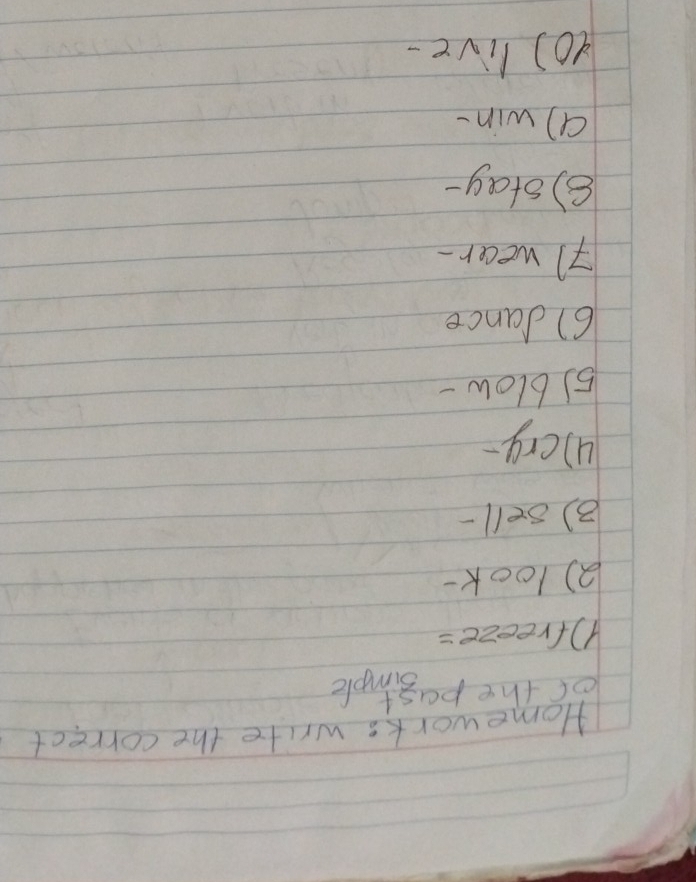 Homework: write the correct
of the past simple
1) freeze=
2) look-
3) sell-
4) cry-
5) blow-
6) dance
7) wear-
8) stay-
9) win-
10) live-